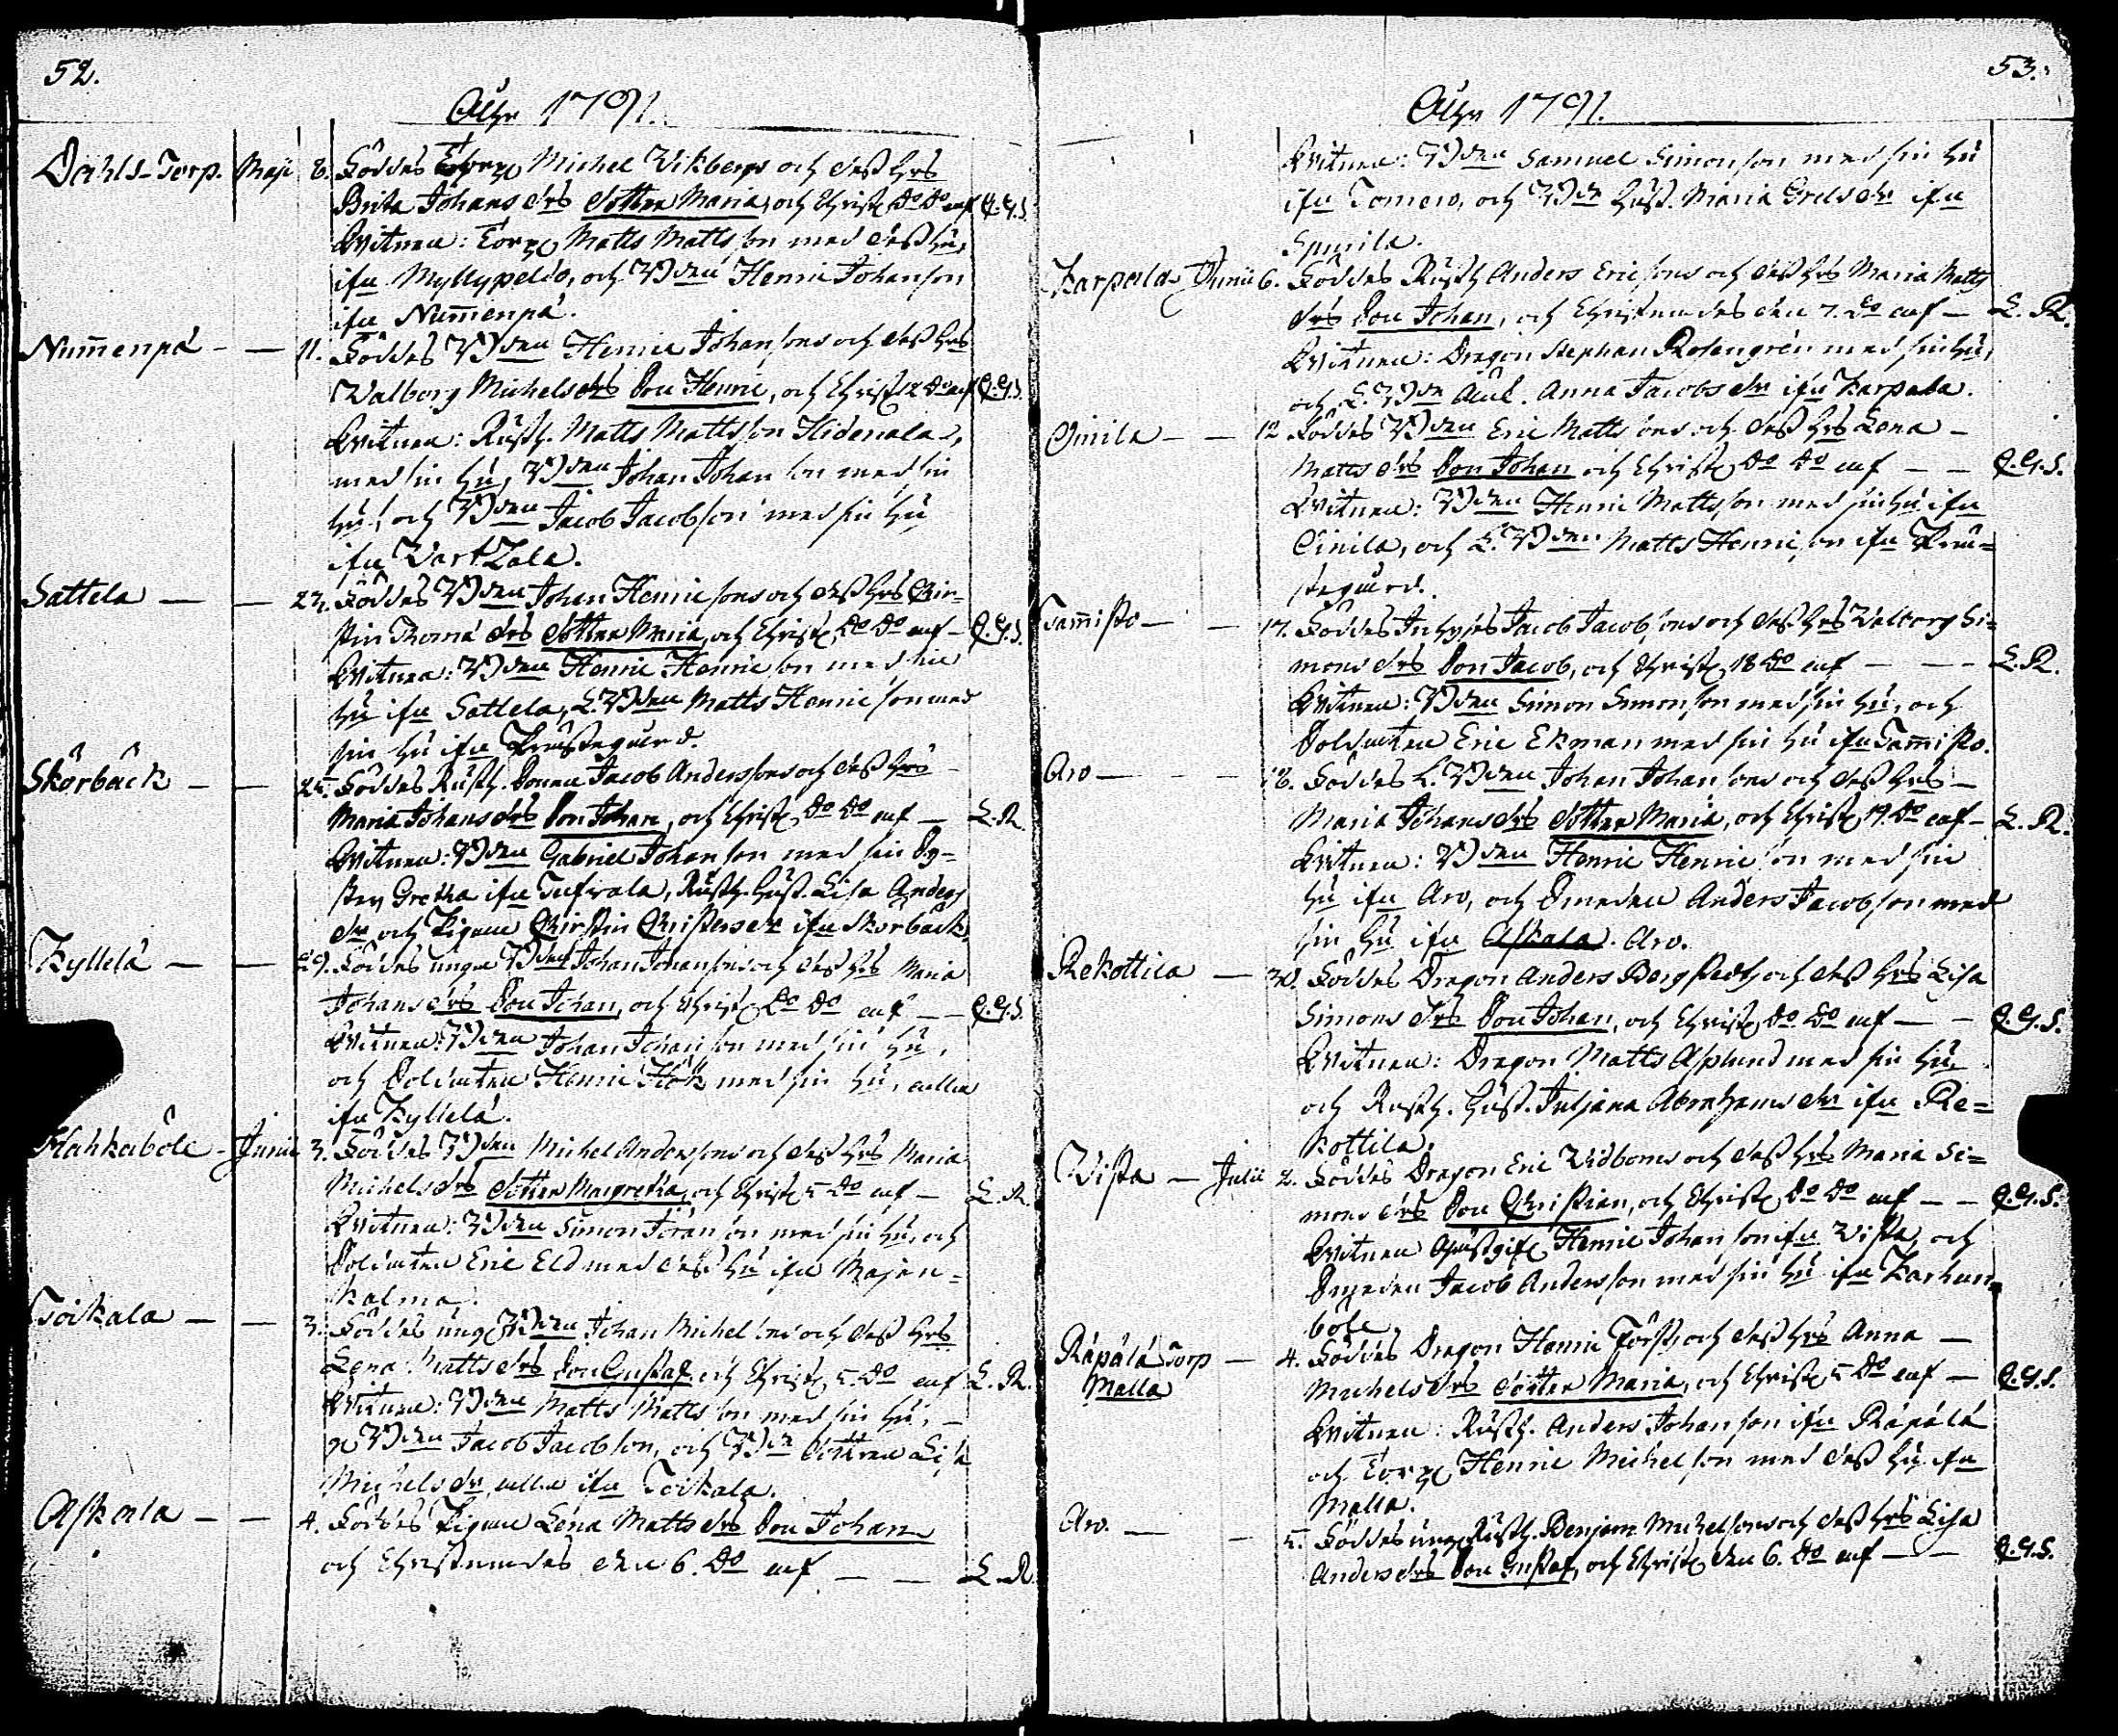 52.
Åhr 1791.
Dahls-Torp. Maji 8. Föddes Torp. Michel Vikbergs och dess Hrs
Brita Johans drs dotter Maria, och Christ. do do af C.G.S.
Witnen: Torp. Matts Mattsson med dess hu,
ifrn Myllypeldo, och Bonden Henric Johansson
ifrn Numenpä.
Numenpä - — 11. Föddes Bonden Henric Johanssons och dess hrs
Walborg Michelsdrs Son Henric, och Christ. 12 do af C.G.S.
Witnen: Rusth. Matts Mattsson Hidenala,
med sin hu, Bonden Johan Johansson med sin
hu, och Bonden Jacob Jacobsson med sin hu
ifrn Wartzala.
Sattela — — 23. Föddes Bonden Johan Henricssons och dess hrs Chir-
stin Thomæ drs dotter Maria, och Christ. do do af - C.G.S.
Witnen: Bonden Henric Henricsson med sin
hu ifrn Sattela, L. Bonden Matts Henricsson med
sin hu ifrn Prustegård.
Skörbäck — — 25. Föddes Rusth. Sonen Jacob Anderssons och dess hrs
Maria Johansdrs Son Johan, och Christ. do do af — L.R.
Witnen: Bonden Gabriel Johansson med sin Sy-
ster Gretha ifrn Tufvala, Rusth. Hust. Lisa Anders
dr och Pigan Chirstin Christersdr ifrn Skörbäck.
Kyllelä — — 29. Föddes unge Bonden Johan Johanssons och dess hrs Maria
Johansdrs Son Johan, och Christ. do do af — — C.G.S.
Witnen: Bonden Johan Johansson med sin hu,
och Soldaten Henric Hök med sin hu, alla
ifrn Kyllelä.
Hahkaböle - Junii 3. Föddes Bonden Michel Anderssons och dess hrs Maria
Michelsdrs dotter Margretha, och Christ. 5 do af — L.R.
Witnen: Bonden Simon Göransson med sin hu, och
Soldaten Eric Eld med dess hu ifrn Majan-
kalma.
Toikala — — 3. Föddes ung. Bonden Johan Michelssons och dess hrs
Lena Mattsdrs Son Gustaf och Christ. 5. do af L.R.
Witnen: Bonden Matts Mattsson med sin hu, —
Bonden Jacob Jacobsson, och Bonde dottren Lisa
Michelsdr, alla ifrn Toikala.
Askala — — 4. Föddes Pigan Lena Mattsdrs Son Johan
och Christnades den 6. do af — — L.R.
53.
Åhr 1791.
Witnen: Bonden Samuel Simonsson med sin hu
ifrn Tomero, och Bonde Hust. Maria Erelsdr ifrn
Spurila.
Karpala Junii 6. Föddes Rusth. Anders Ericssons och dess hrs Maria Matts
drs Son Johan, och Christnades den 7. do af — L.R.
Witnen: Dragon Stephan Rosengrén med sin hu,
och L. Bonde Enk. Anna Jacobsdr ifrn Karpala.
Oinila — — 12 Föddes Bonden Eric Mattssons och dess hrs Lena —
Mattsdrs Son Johan och Christ. do do af — — C.G.S.
Witnen: Bonden Henric Mattsson med sin hu ifrn
Oinila, och L. Bonden Matts Henricsson ifrn Pru-
stegård.
Tammisto — — 17. Föddes Inhyses Jacob Jacobssons och dess hrs Walborg Si-
monsdrs Son Jacob, och Christ. 18 do af — — - L.R.
Witnen: Bonden Simon Simonsson med sin hu, och
Soldaten Eric Ekman med sin hu ifrn Tammisto.
Aro — — — 18. Föddes L. Bonden Johan Johanssons och dess hrs —
Maria Johansdrs dotter Maria, och Christ. 19. do af - L.R.
Witnen: Bonden Henric Henricsson med sin
hu ifrn Aro, och Smeden Anders Jacobsson med
sin hu ifrn Askala. Aro.
Rekottila — 30. Föddes Dragon Anders Bergstedts och dess hrs Lisa
Simonsdrs Son Johan, och Christ. do do af — — C.G.S.
Witnen: Dragon Matts Asplund med sin hu
och Rusth. Hust. Juliana Abrahamsdr ifrn Re-
kottila.
Wista — Julii 2. Föddes Dragon Eric Widboms och dess hrs Maria Si-
monsdrs Son Christian, och Christ. do do af — — C.G.S.
Witnen Henric Johansson ifrn Wista, och
Smeden Jacob Andersson med sin hu ifrn Karhun-
böle.
Räpälä Torp — 4. Föddes Dragon Henric Törst, och dess hrs Anna —
Malla Michelsdrs dotter Maria, och Christ. 5 do af — C.G.S.
Witnen: Rusth. Anders Johansson ifrn Räpälä
och Torp. Henric Michelsson med dess hu ifrn
Malla.
Aro. — — 5. Föddes unge Rusth. Benjam. Michelssons och dess hrs Lisa
Andersdrs Son Gustaf, och Christ. den 6. do af — — C.G.S.